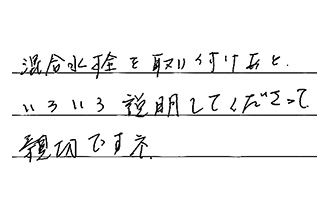 混合水栓を取り付けあと.
いろいろ説明してくださって
親切ですネ.